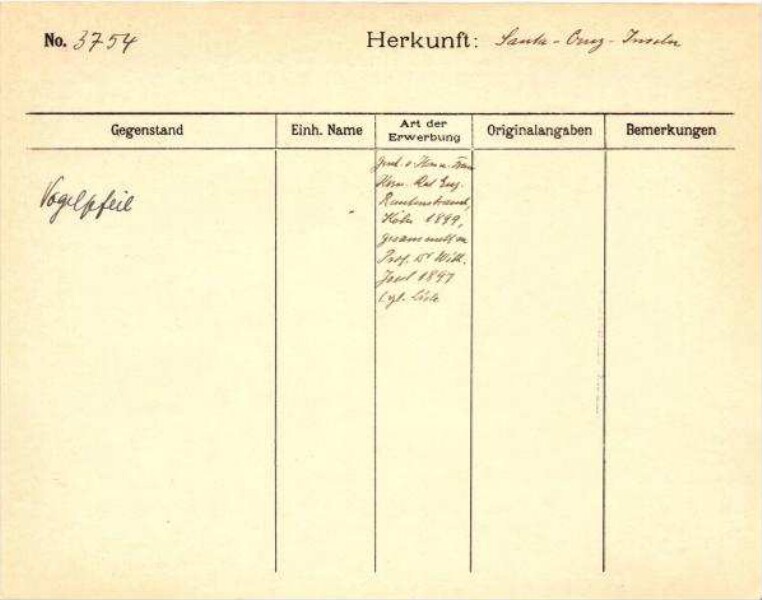 No. 3754 Herkunft: Santa-Cruz-Inseln
Gegenstand Einh. Name Art der Erwerbung Originalangaben Bemerkungen
Vogelpfeil
Gesch. v. Herrn u. Frau
Eug.
Rautenstrauch,
Köln 1899,
gesammelt von
Prof. Dr Wilh.
Joest 1897
vgl. Liste